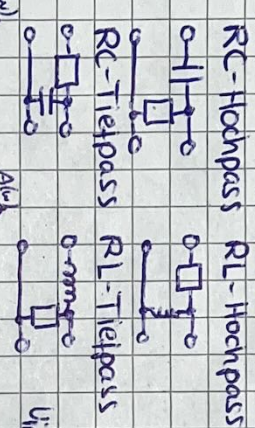 RC-Hochpass
RL-Hochpass
RC-Tiefpass
RL-Tiefpass